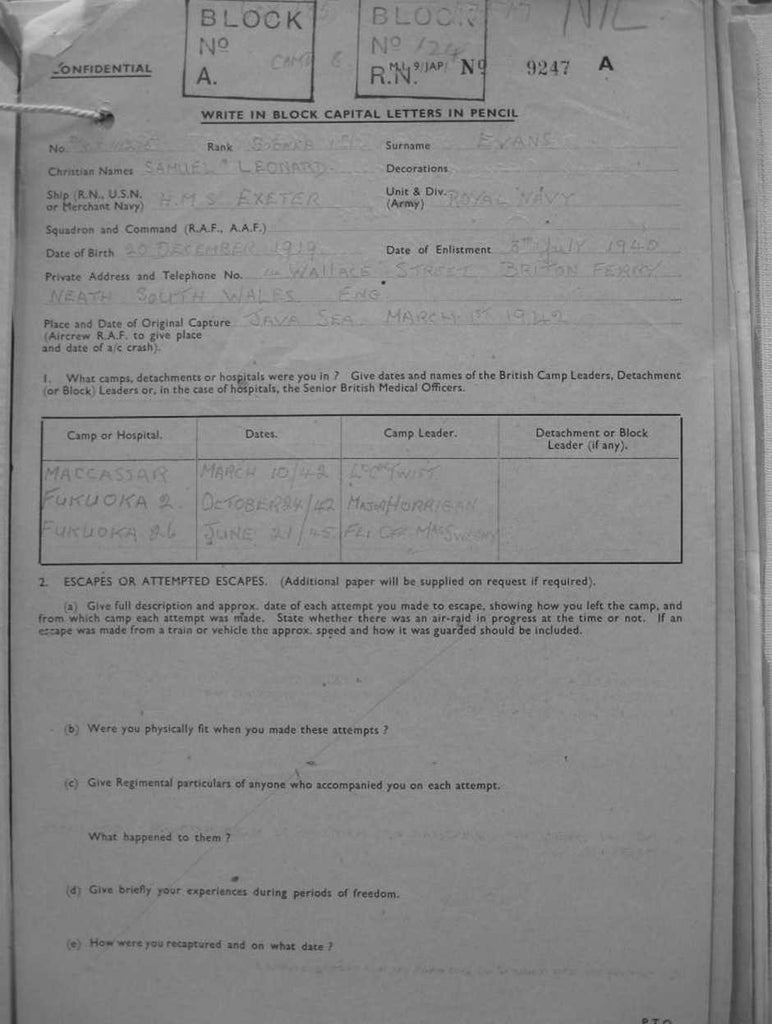 BLOCK
Nº
A.
CAMP 6
BLOCK
Nº 124
R.N.
NIL
CONFIDENTIAL
M.I. 9/JAP/ Nº 9247 A
WRITE IN BLOCK CAPITAL LETTERS IN PENCIL
No. Rank Surname EVANS
Christian Names SAMUEL LEONARD Decorations
Ship (R.N., U.S.N. or Merchant Navy) H.M.S EXETER Unit & Div. (Army) ROYAL NAVY
Squadron and Command (R.A.F., A.A.F.)
Date of Birth 20 DECEMBER 1919 Date of Enlistment 3RD JULY 1940
Private Address and Telephone No. WALLACE STREET BRITON FERRY
NEATH SOUTH WALES ENG
Place and Date of Original Capture JAVA SEA MARCH 1ST 1942
(Aircrew R.A.F. to give place
and date of a/c crash).
1. What camps, detachments or hospitals were you in ? Give dates and names of the British Camp Leaders, Detachment
(or Block) Leaders or, in the case of hospitals, the Senior British Medical Officers.
Camp or Hospital. Dates. Camp Leader. Detachment or Block
Leader (if any).
MACCASSAR MARCH 10/42 TWIST
FUKUOKA 2 OCTOBER 24/42 MAJOR HORRIGAN
FUKUOKA 26 JUNE 21/45
2. ESCAPES OR ATTEMPTED ESCAPES. (Additional paper will be supplied on request if required).
(a) Give full description and approx. date of each attempt you made to escape, showing how you left the camp, and
from which camp each attempt was made. State whether there was an air-raid in progress at the time or not. If an
escape was made from a train or vehicle the approx. speed and how it was guarded should be included.
(b) Were you physically fit when you made these attempts ?
(c) Give Regimental particulars of anyone who accompanied you on each attempt.
What happened to them ?
(d) Give briefly your experiences during periods of freedom.
(e) How were you recaptured and on what date ?
P.T.O.